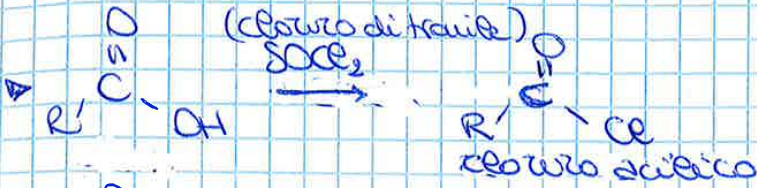 O (cloruro di tionile) O
|| SOCl₂ ||
C → C
R OH R Cl
cloruro acilico